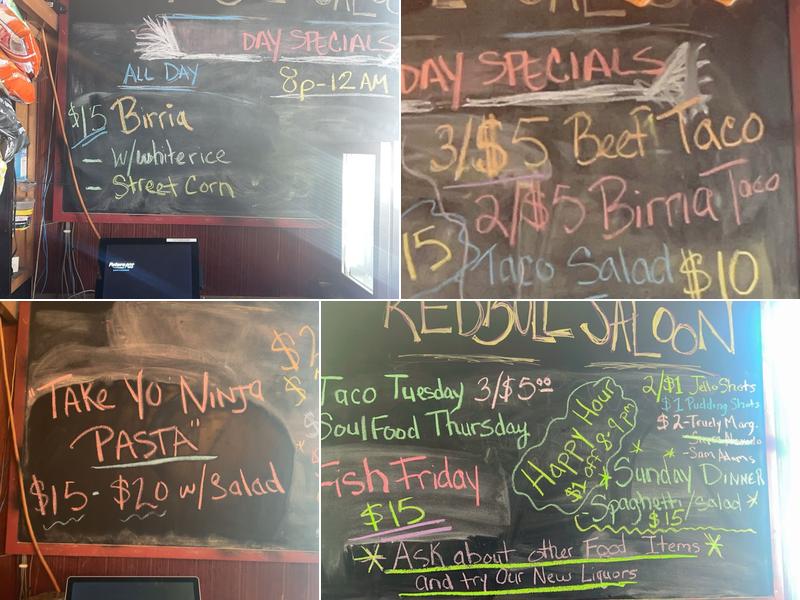 DAY SPECIALS
ALL DAY
8p-12AM
$15 Birria
- w/white rice
- Street Corn
DAY SPECIALS
3/$5 Beef Taco
2/$5 Birria Taco
15
Taco Salad $10
"TAKE YO NINJA
PASTA"
$15 - $20 w/Salad
REDBULL SALOON
Taco Tuesday 3/$5.00
Soul Food Thursday
Fish Friday
$15
Happy Hour
$1 off 8-9pm
2/$1 Jello Shots
$1 Pudding Shots
$2-Truely Marg.
-Sam Adams
Sunday DINNER
-Spaghetti/Salad
$15
Ask about other Food Items
and try Our New Liquors